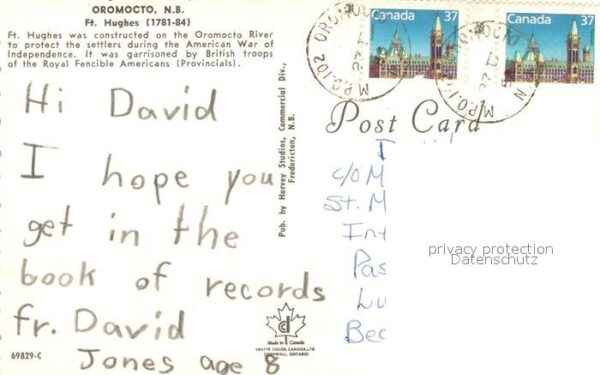 OROMOCTO, N.B.
Ft. Hughes (1781-84)
Ft. Hughes was constructed on the Oromocto River
to protect the settlers during the American War of
Independence. It was garrisoned by British troops
of the Royal Fencible Americans (Provincials).
Hi David
I hope you
get in the
book of records
fr. David
Jones age 8
69829-C
Pub. by Harvey Studios, Commercial Div.,
Fredericton, N.B.
Made in Canada
CORNWALL, ONTARIO
Canada 37
Canada 37
M.P.O. 102 OROMOCTO
Post Card
c/o M
St. M
Int
Pas
Lu
Bec
privacy protection
Datenschutz